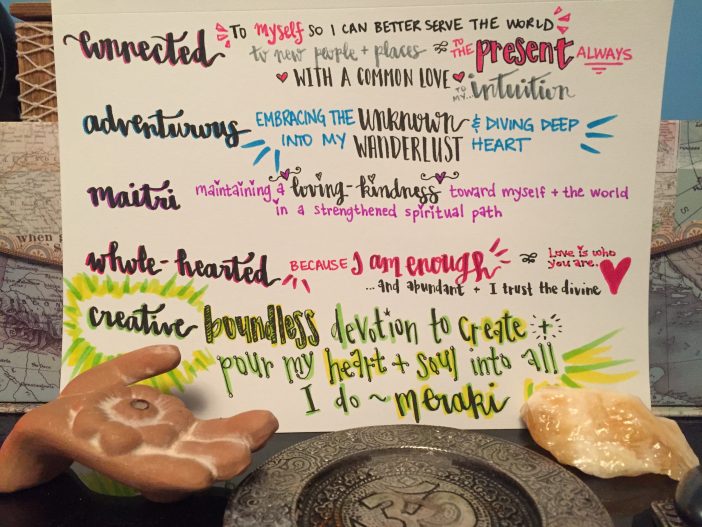 connected TO myself SO I CAN BETTER SERVE THE WORLD
to new people + places ∞ TO THE present ALWAYS
WITH A COMMON LOVE TO MY... intuition
adventurous EMBRACING THE unknown & DIVING DEEP
INTO MY WANDERLUST HEART
maitri maintaining a loving-kindness toward myself + the world
in a strengthened spiritual path
whole-hearted BECAUSE I am enough ∞ Love is who you are...
...and abundant + I trust the divine
creative boundless devotion to create +
pour my heart + soul into all
I do ~ meraki
when
ॐ